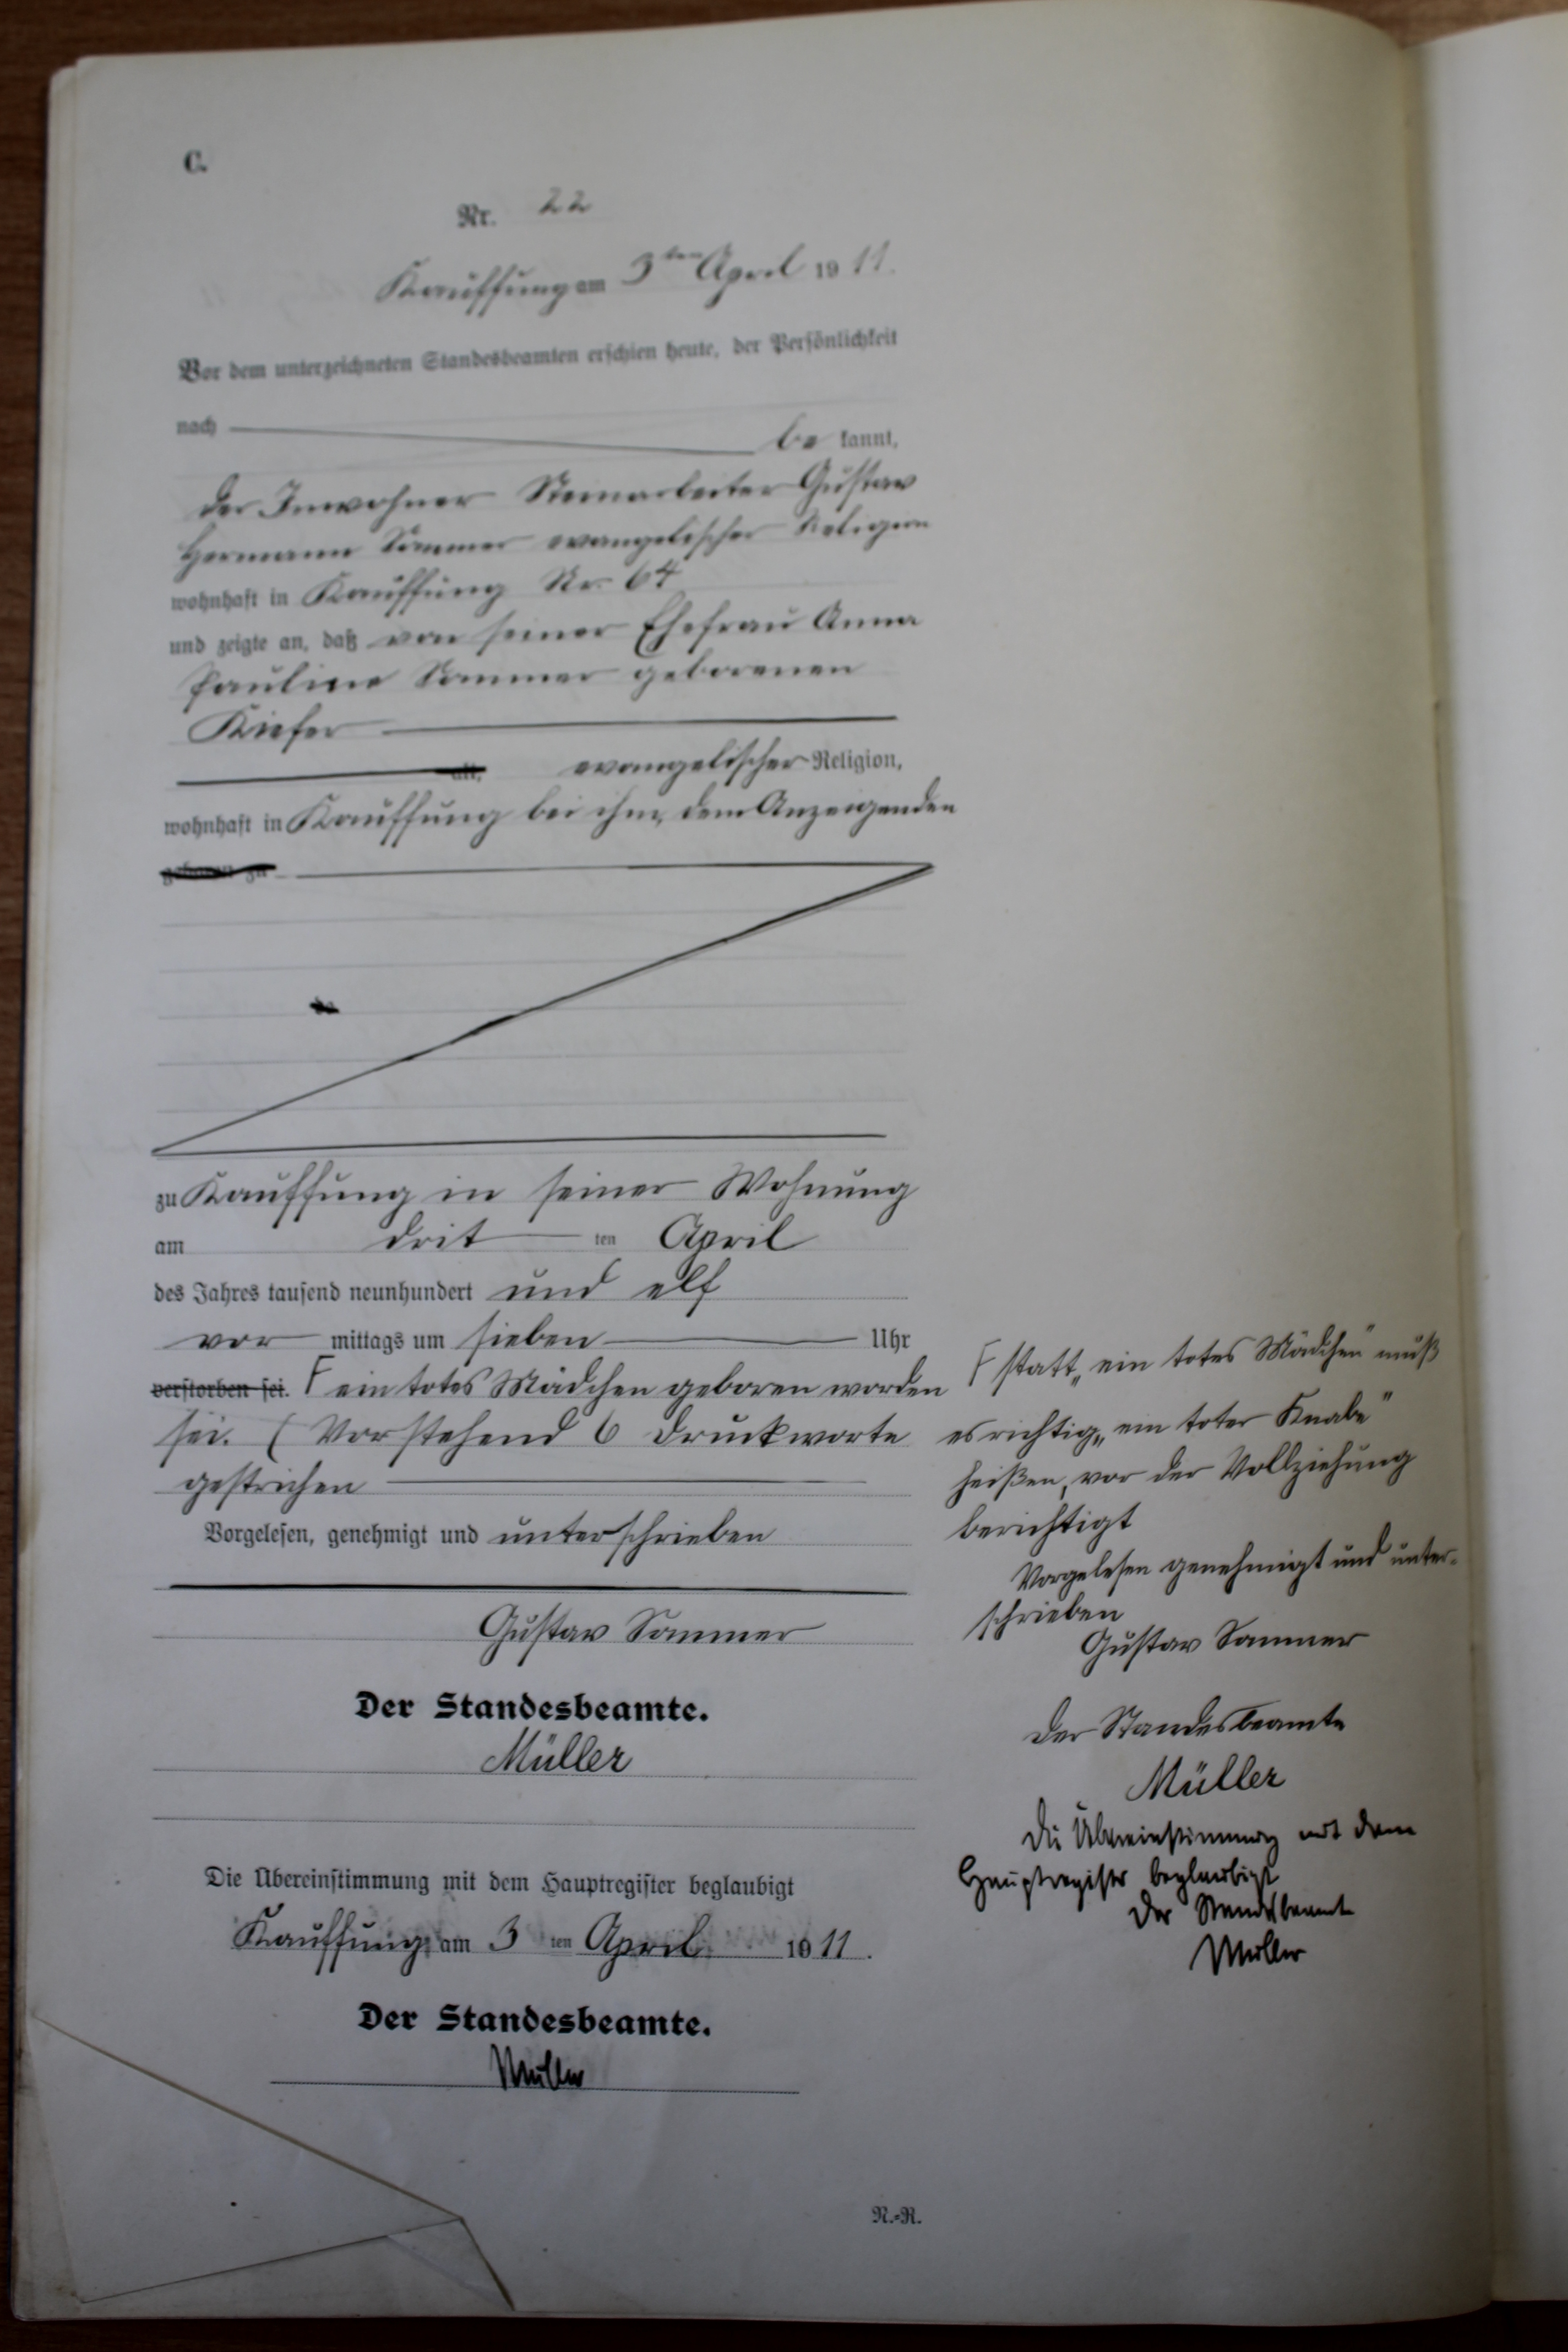 C.
Nr. 22
Kauffung am 3ten April 1911.
Vor dem unterzeichneten Standesbeamten erschien heute, der Persönlichkeit
nach be kannt,
der Inwohner Steinarbeiter Gustav
Hermann Sommer evangelischer Religion
wohnhaft in Kauffung Nr. 64
und zeigte an, daß von seiner Ehefrau Anna
Pauline Sommer geborenen
Kiefer
alt, evangelischer Religion,
wohnhaft in Kauffung bei ihm, dem Anzeigenden
geboren zu
zu Kauffung in seiner Wohnung
am drit ten April
des Jahres tausend neunhundert und elf
vor mittags um sieben Uhr
verstorben sei. F ein totes Mädchen geboren worden
sei. (Vorstehend 6 Druckworte
gestrichen
Vorgelesen, genehmigt und unterschrieben
Gustav Sommer
Der Standesbeamte.
Müller
Die Übereinstimmung mit dem Hauptregister beglaubigt
Kauffung, am 3 ten April 1911.
Der Standesbeamte.
Müller
F statt „ein totes Mädchen" muß
es richtig „ein toter Knabe"
heißen, vor der Vollziehung
berichtigt
Vorgelesen genehmigt und unter-
schrieben
Gustav Sommer
Der Standesbeamte
Müller
Die Übereinstimmung mit dem
Hauptregister beglaubigt
Der Standesbeamte
Müller
N.=R.